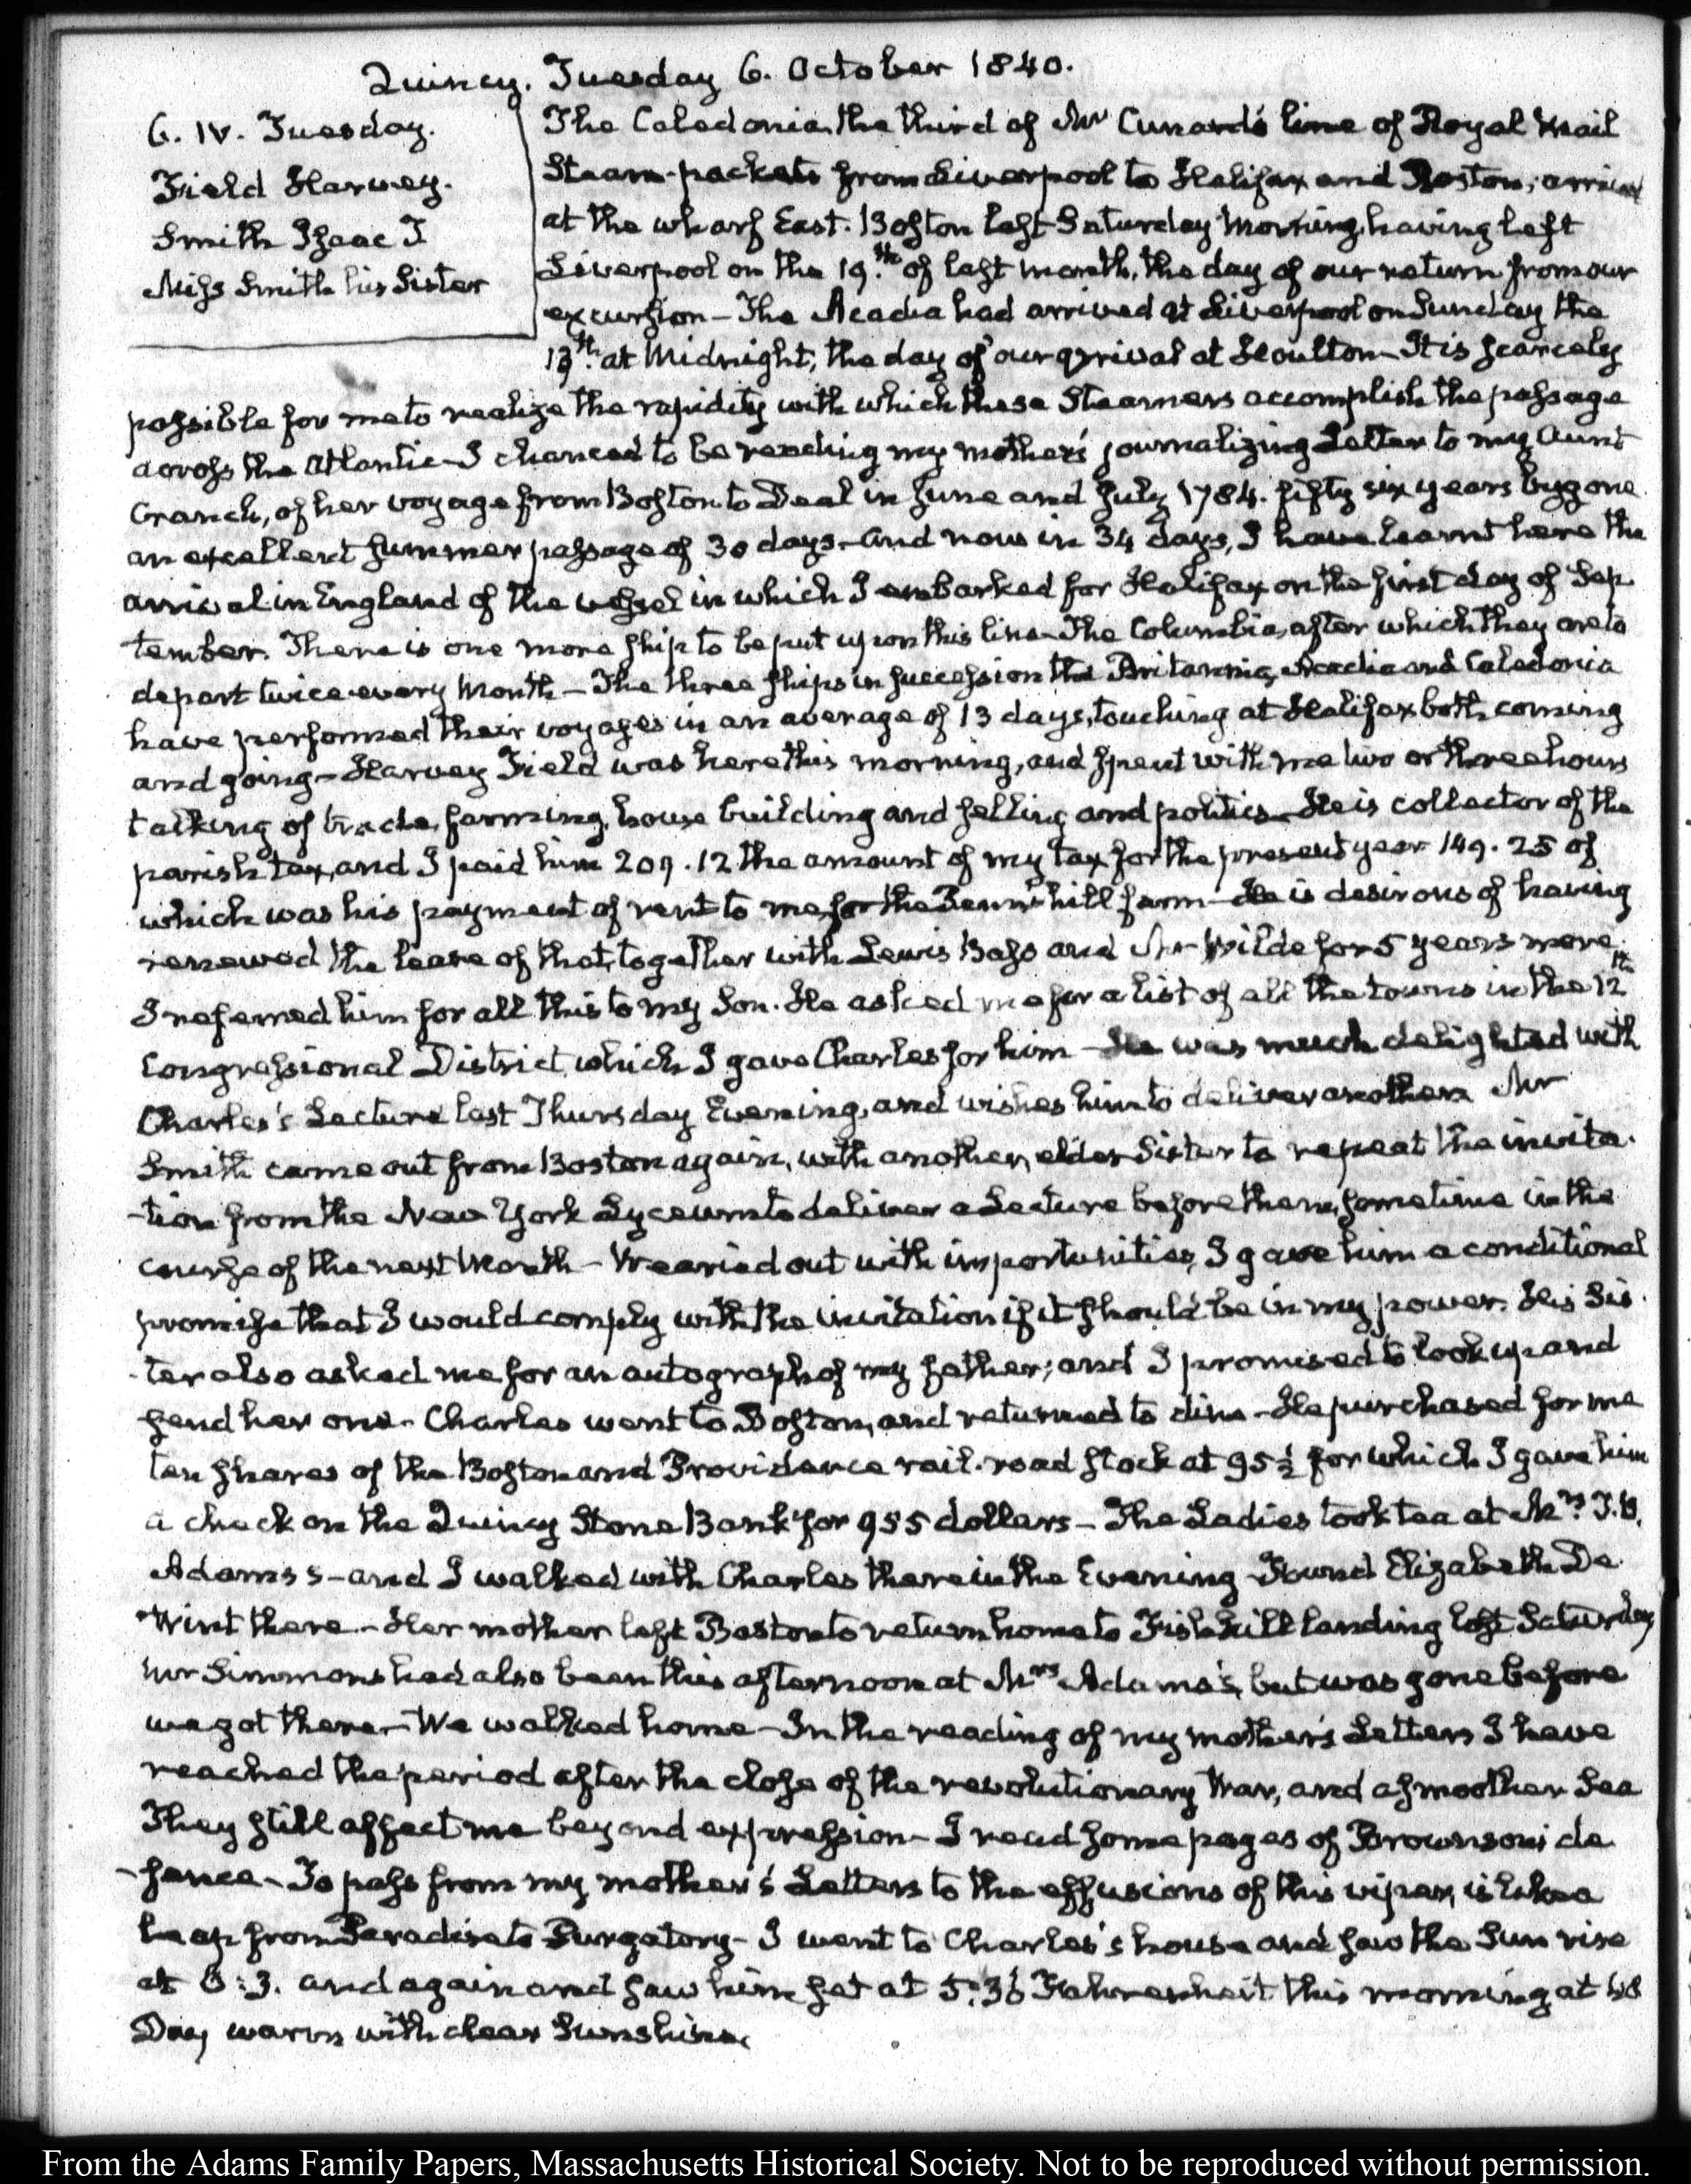 Quincy. Tuesday 6. October 1840.
6. IV. Tuesday.
Field Harvey.
Smith Isaac T
Miss Smith his Sister
The Caledonia, the third of Mr Cunard's line of Royal Mail
Steam-packets from Liverpool to Halifax and Boston, arrived
at the wharf East-Boston last Saturday Morning, having left
Liverpool on the 19.th of last month, the day of our return from our
excursion – The Acadia had arrived at Liverpool on Sunday the
13th. at Midnight, the day of our arrival at Houlton – It is scarcely
possible for me to realize the rapidity with which these Steamers accomplish the passage
across the Atlantic – I chanced to be reading my mother's journalizing Letter to my Aunt
Cranch, of her voyage from Boston to Deal in June and July 1784. fifty six years bygone
an excellent summer passage of 30 days – and now in 34 days, I have learnt here the
arrival in England of the vessel in which I embarked for Halifax on the first day of Sep
tember. There is one more ship to be put upon this line – The Columbia, after which they are to
depart twice every Month – The three ships in succession the Britannia, Acadia and Caledonia
have performed their voyages in an average of 13 days, touching at Halifax both coming
and going – Harvey Field was here this morning, and spent with me two or three hours
talking of trade, farming, house building and selling, and politics – He is collector of the
parish tax, and I paid him 209.12 the amount of my tax for the present year 149.25 of
which was his payment of rent to me, for the Penn's hill farm – He is desirous of having
renewed the lease of that, together with Lewis Bass and Mr Wilde for 5 years more
I referred him for all this to my Son. He asked me for a list of all the towns in the 12th
Congressional District, which I gave Charles for him – He was much delighted with
Charles's Lecture last Thursday Evening, and wishes him to deliver another. Mr
Smith came out from Boston again, with another, elder Sister to repeat the invita-
-tion from the New York Lyceum to deliver a Lecture before them, sometime in the
course of the next Month – Wearied out with importunities, I gave him a conditional
promise that I would comply with the invitation if it should be in my power. His Sis-
-ter also asked me for an autograph of my father; and I promised to look up and
send her one – Charles went to Boston, and returned to dine – He purchased for me
ten shares of the Boston and Providence rail-road stock at 95½ for which I gave him
a check on the Quincy Stone Bank for 955 dollars – The Ladies took tea at Mrs. T. B.
Adams's – and I walked with Charles there in the Evening – Found Elizabeth De
Wint there – Her mother left Boston to return home to Fishkill landing last Saturday
Mr Simmons had also been this afternoon at Mrs Adams's, but was gone before
we got there – We walked home – In the reading of my mother's Letters I have
reached the period after the close of the revolutionary War, and a smoother Sea
They still affect me beyond expression – I read some pages of Brownson's de
-fence – To pass from my mother's Letters to the effusions of this viper, is like a
leap from Paradise to Purgatory – I went to Charles's house and saw the Sun rise
at 6:3. and again and saw him set at 5:36 Fahrenheit this morning at 48
Day warm with clear Sunshine.
From the Adams Family Papers, Massachusetts Historical Society. Not to be reproduced without permission.